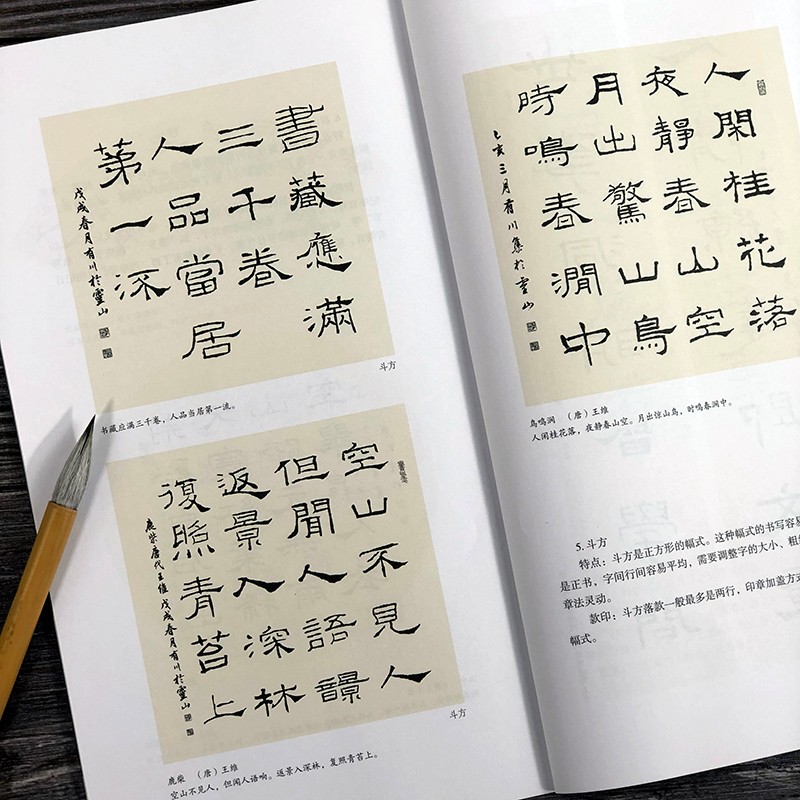 書藏應滿
三千卷
人品當居
第一流
戊戌春月有川於靈山
斗方
书藏应满三千卷，人品当居第一流。
空山不見人
但聞人語響
返景入深林
復照青苔上
鹿柴唐代王維戊戌春月有川於靈山
斗方
鹿柴 （唐）王维
空山不见人，但闻人语响。返景入深林，复照青苔上。
人閑桂花落
夜靜春山空
月出驚山鳥
時鳴春澗中
己亥三月有川集於靈山
鸟鸣涧 （唐）王维
人闲桂花落，夜静春山空。月出惊山鸟，时鸣春涧中。
5. 斗方
特点：斗方是正方形的幅式。这种幅式的书写容易
是正书，字间行间容易平均，需要调整字的大小、粗细
章法灵动。
款印：斗方落款一般最多是两行，印章加盖方式
幅式。